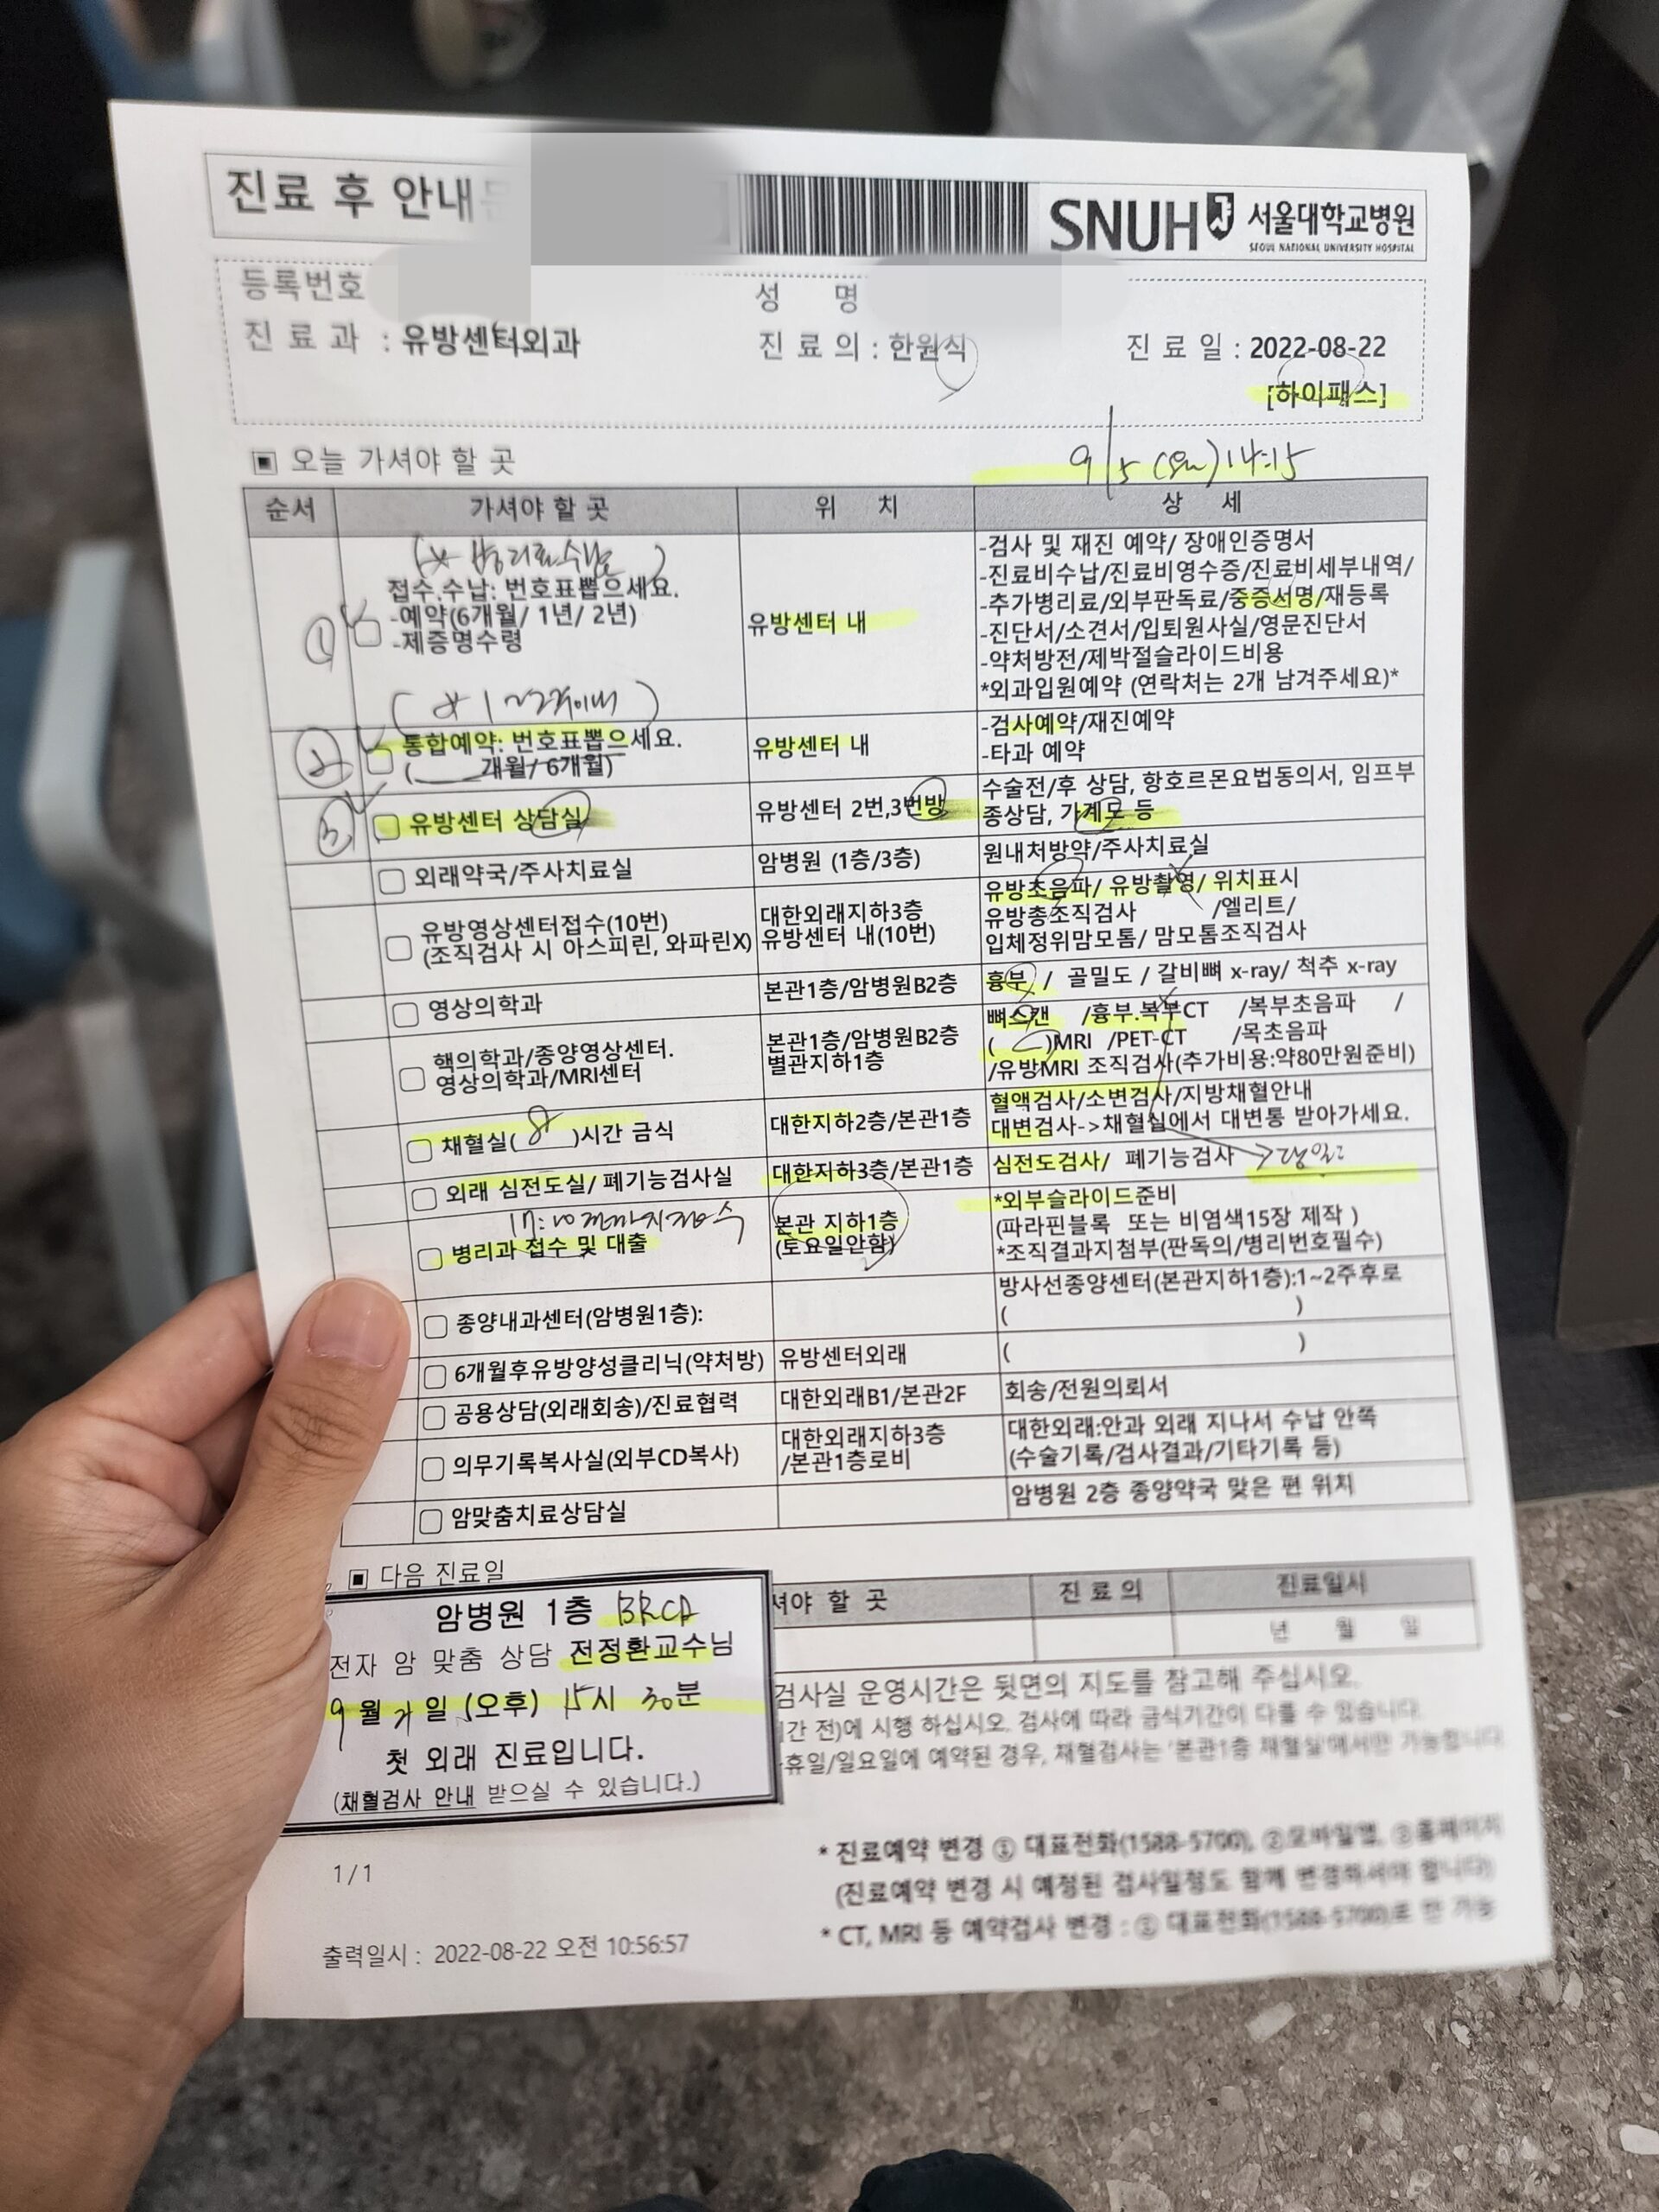 진료 후 안내
SNUH 서울대학교병원
SEOUL NATIONAL UNIVERSITY HOSPITAL
등록번호 성 명
진 료 과 : 유방센터외과 진 료 의 : 한원식 진 료 일 : 2022-08-22
[하이패스]
▣ 오늘 가셔야 할 곳 9/5 14:15
순서 가셔야 할 곳 위 치 상 세
(* 병리료수납 )
① 접수.수납: 번호표뽑으세요.
-예약(6개월/ 1년/ 2년)
-제증명수령
유방센터 내
-검사 및 재진 예약/ 장애인증명서
-진료비수납/진료비영수증/진료비세부내역/
-추가병리료/외부판독료/중증서명/재등록
-진단서/소견서/입퇴원사실/영문진단서
-약처방전/제박절슬라이드비용
*외과입원예약 (연락처는 2개 남겨주세요)*
(* 1~2주이내 )
② 통합예약: 번호표뽑으세요.
(____개월/ 6개월)
유방센터 내
-검사예약/재진예약
-타과 예약
③ 유방센터 상담실
유방센터 2번,3번방
수술전/후 상담, 항호르몬요법동의서, 임프부
종상담, 가계도 등
외래약국/주사치료실 암병원 (1층/3층) 원내처방약/주사치료실
유방영상센터접수(10번)
(조직검사 시 아스피린, 와파린X)
대한외래지하3층
유방센터 내(10번)
유방초음파/ 유방촬영/ 위치표시
유방총조직검사 /엘리트/
입체정위맘모톰/ 맘모톰조직검사
영상의학과 본관1층/암병원B2층 흉부 / 골밀도 / 갈비뼈 x-ray/ 척추 x-ray
핵의학과/종양영상센터.
영상의학과/MRI센터
본관1층/암병원B2층
별관지하1층
뼈스캔 /흉부.복부CT /복부초음파 /
( )MRI /PET-CT /목초음파
/유방MRI 조직검사(추가비용:약80만원준비)
채혈실( 8 )시간 금식 대한지하2층/본관1층
혈액검사/소변검사/지방채혈안내
대변검사->채혈실에서 대변통 받아가세요.
외래 심전도실/ 폐기능검사실 대한지하3층/본관1층 심전도검사/ 폐기능검사 당일
병리과 접수 및 대출
본관 지하1층
(토요일안함)
*외부슬라이드준비
(파라핀블록 또는 비염색15장 제작 )
*조직결과지첨부(판독의/병리번호필수)
종양내과센터(암병원1층):
방사선종양센터(본관지하1층):1~2주후로
( )
6개월후유방양성클리닉(약처방) 유방센터외래 ( )
공용상담(외래회송)/진료협력 대한외래B1/본관2F 회송/전원의뢰서
의무기록복사실(외부CD복사)
대한외래지하3층
/본관1층로비
대한외래:안과 외래 지나서 수납 안쪽
(수술기록/검사결과/기타기록 등)
암맞춤치료상담실 암병원 2층 종양약국 맞은 편 위치
▣ 다음 진료일
셔야 할 곳 진 료 의 진료일시
년 월 일
암병원 1층 BRCA
전자 암 맞춤 상담 전정환교수님
9월 21일 (오후) 15시 30분
첫 외래 진료입니다.
(채혈검사 안내 받으실 수 있습니다.)
검사실 운영시간은 뒷면의 지도를 참고해 주십시오.
간 전)에 시행 하십시오. 검사에 따라 금식기간이 다를 수 있습니다.
휴일/일요일에 예약된 경우, 채혈검사는 '본관1층 채혈실'에서만 가능합니다.
* 진료예약 변경 ① 대표전화(1588-5700), ②모바일앱, ③홈페이지
(진료예약 변경 시 예정된 검사일정도 함께 변경하셔야 합니다)
* CT, MRI 등 예약검사 변경 : ① 대표전화(1588-5700)로 만 가능
1/1
출력일시 : 2022-08-22 오전 10:56:57